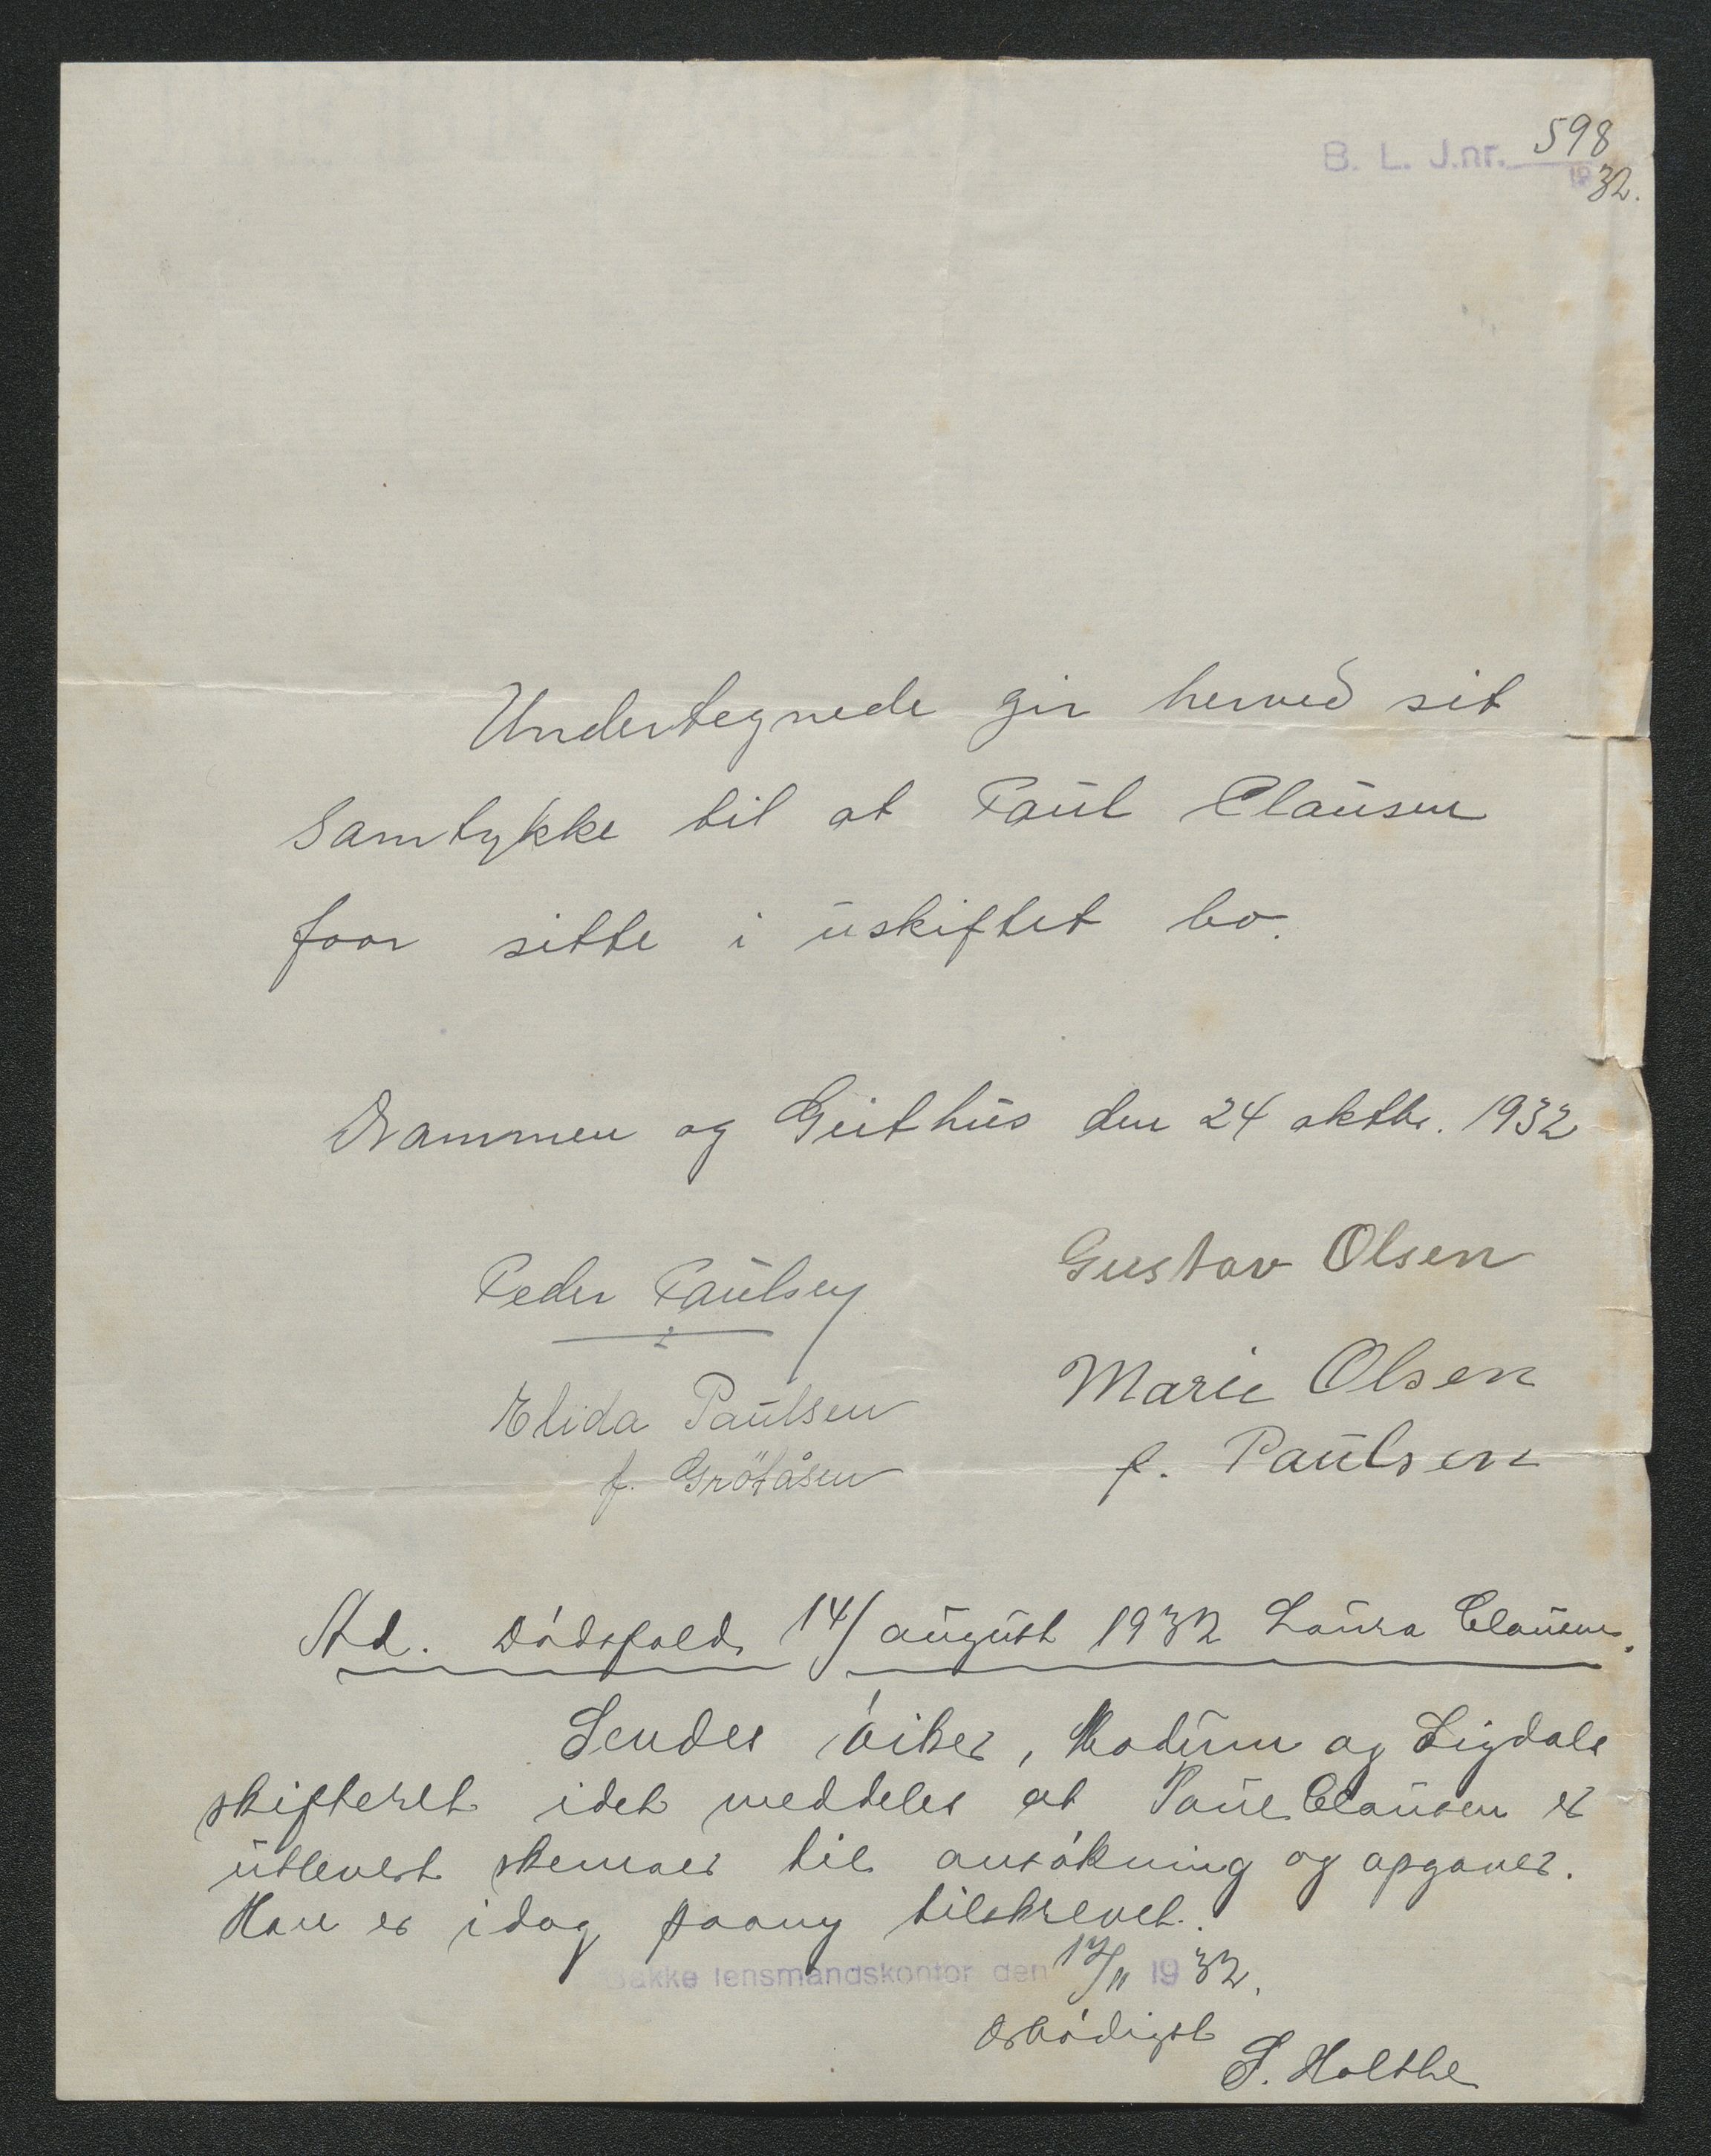 B. L. J.nr. 598
1932.
Undertegnede gir herved sit
Samtykke til at Paul Clausen
faar sitte i uskiftet bo.
Drammen og Geithus den 24 oktbr. 1932
Peder Paulsen
Gustav Olsen
Elida Paulsen
f. Grötåsen
Marie Olsen
f. Paulsen
Ad. Dödsfald 14/august 1932 Laura Clausen.
Sendes Eiker, Modum og Sigdals
skifteret idet meddeles at Paul Clausen er
utlevert skemaer til ansökning og opgaver.
Han er idag paany tilskrevet.
Bakke lensmandskontor den 17/11 1932.
Ærbödigst
S. Holthe